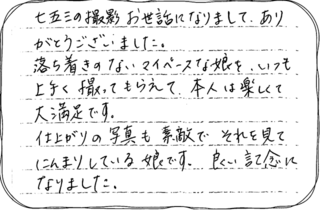 七五三の撮影お世話になりまして、あり
がとうございました。
落ち着きのないマイペースな娘を、いつも
上手く撮ってもらえて、本人は楽しくて
大満足です。
仕上がりの写真も素敵で それを見て
にんまりしている娘です。 良い記念に
なりました。